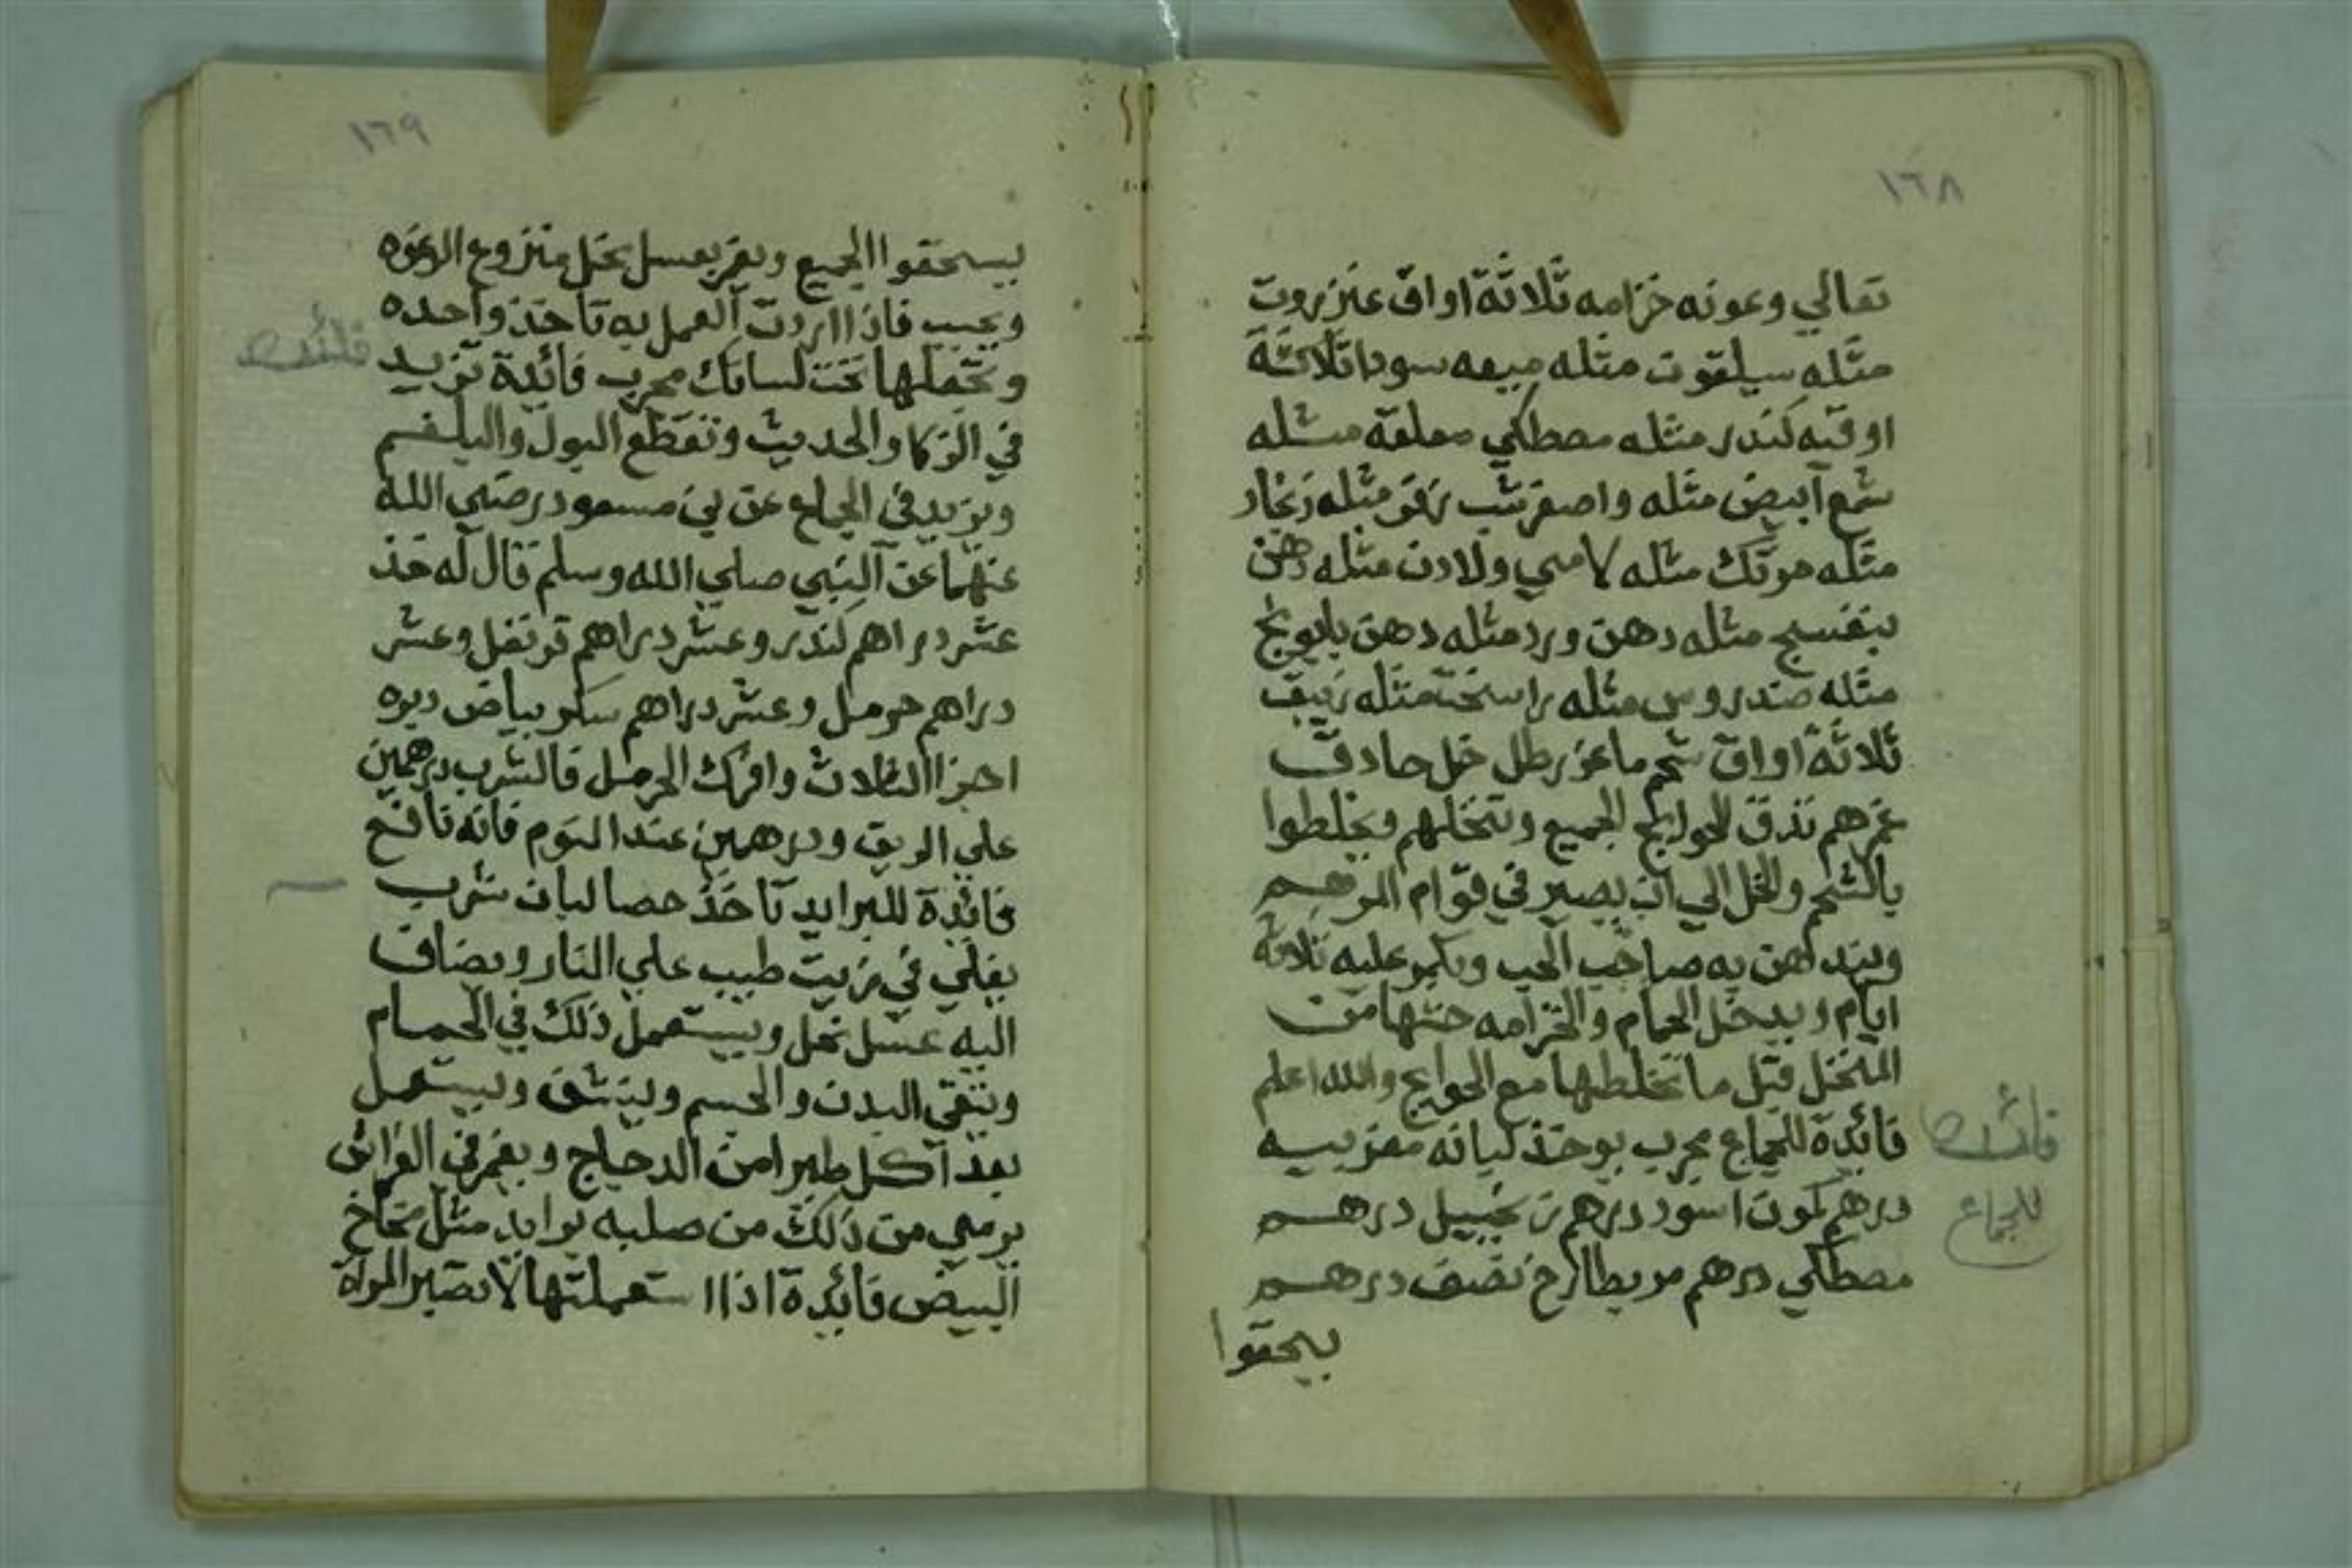 ١٦٨
تعالي وعونه خزامه ثلاثة اواق عنزروت
مثله سيلقوت مثله ميعه سودا ثلاثة
اوقيه كندر مثله مصطكي معلقة مثله
شمع آبيض مثله واصفر شب زفر مثله زنجار
مثله موتك مثله لامي ولادن مثله دهن
بنفسج مثله دهن ورد مثله دهن بابونج
مثله صندروس مثله راسخت مثله زيبق
ثلاثة اواق شحم ماعز رطل خل حادق
غمرهم تذق الحوايج الجميع وتنخلهم ويخلطوا
بالشحم والخل الي ان يصير في قوام المرهم
ويندهن به صاحب الحب ويكمر عليه ثلاثة
ايام ويدخل الحمام والخزامه حتها من
المنخل قبل ما تخلطها مع الحوايج والله اعلم
فائدة للجماع مجرب يوخذ لبانه مغربيه
درهم كمون اسود درهم زنجبيل درهم
مصطكي درهم مر بطارخ نصف درهم
يسحقوا
فائده
للجماع
١٦٩
يسحقوا الجميع ويعقر بعسل نحل منزوع الرغوه
ويحبب فاذا اردت العمل به تاخذ واحده
وتجعلها تحت لسانك مجرب فائدة تزيد
في الذكا والحديث وتقطع البول والبلغم
ويزيد في الجماع عن بن مسعود رضي الله
عنهما عن النبي صلي الله وسلم قال له خذ
عشر دراهم كندر وعشر دراهم قرنفل وعشر
دراهم حرمل وعشر دراهم سكر بياض ديوه
اجزا الثلاث وافرك الحرمل فالشرب درهمين
علي الريق ودرهمين عند النوم فانه نافع
فائدة للبرايد تاخذ حصا لبان شرب
يغلي في زيت طيب علي النار ويضاف
اليه عسل نحل ويستعمل ذلك في الحمام
وينقي البدن والجسم وينشف ويستعمل
بعد آكل طيرا من الدجاج ويغمر في الفراش
يرمي من ذلك من صلبه برايد مثل مخاخ
البيض فائدة اذا استعملتها لا تصبر المراة
فائده